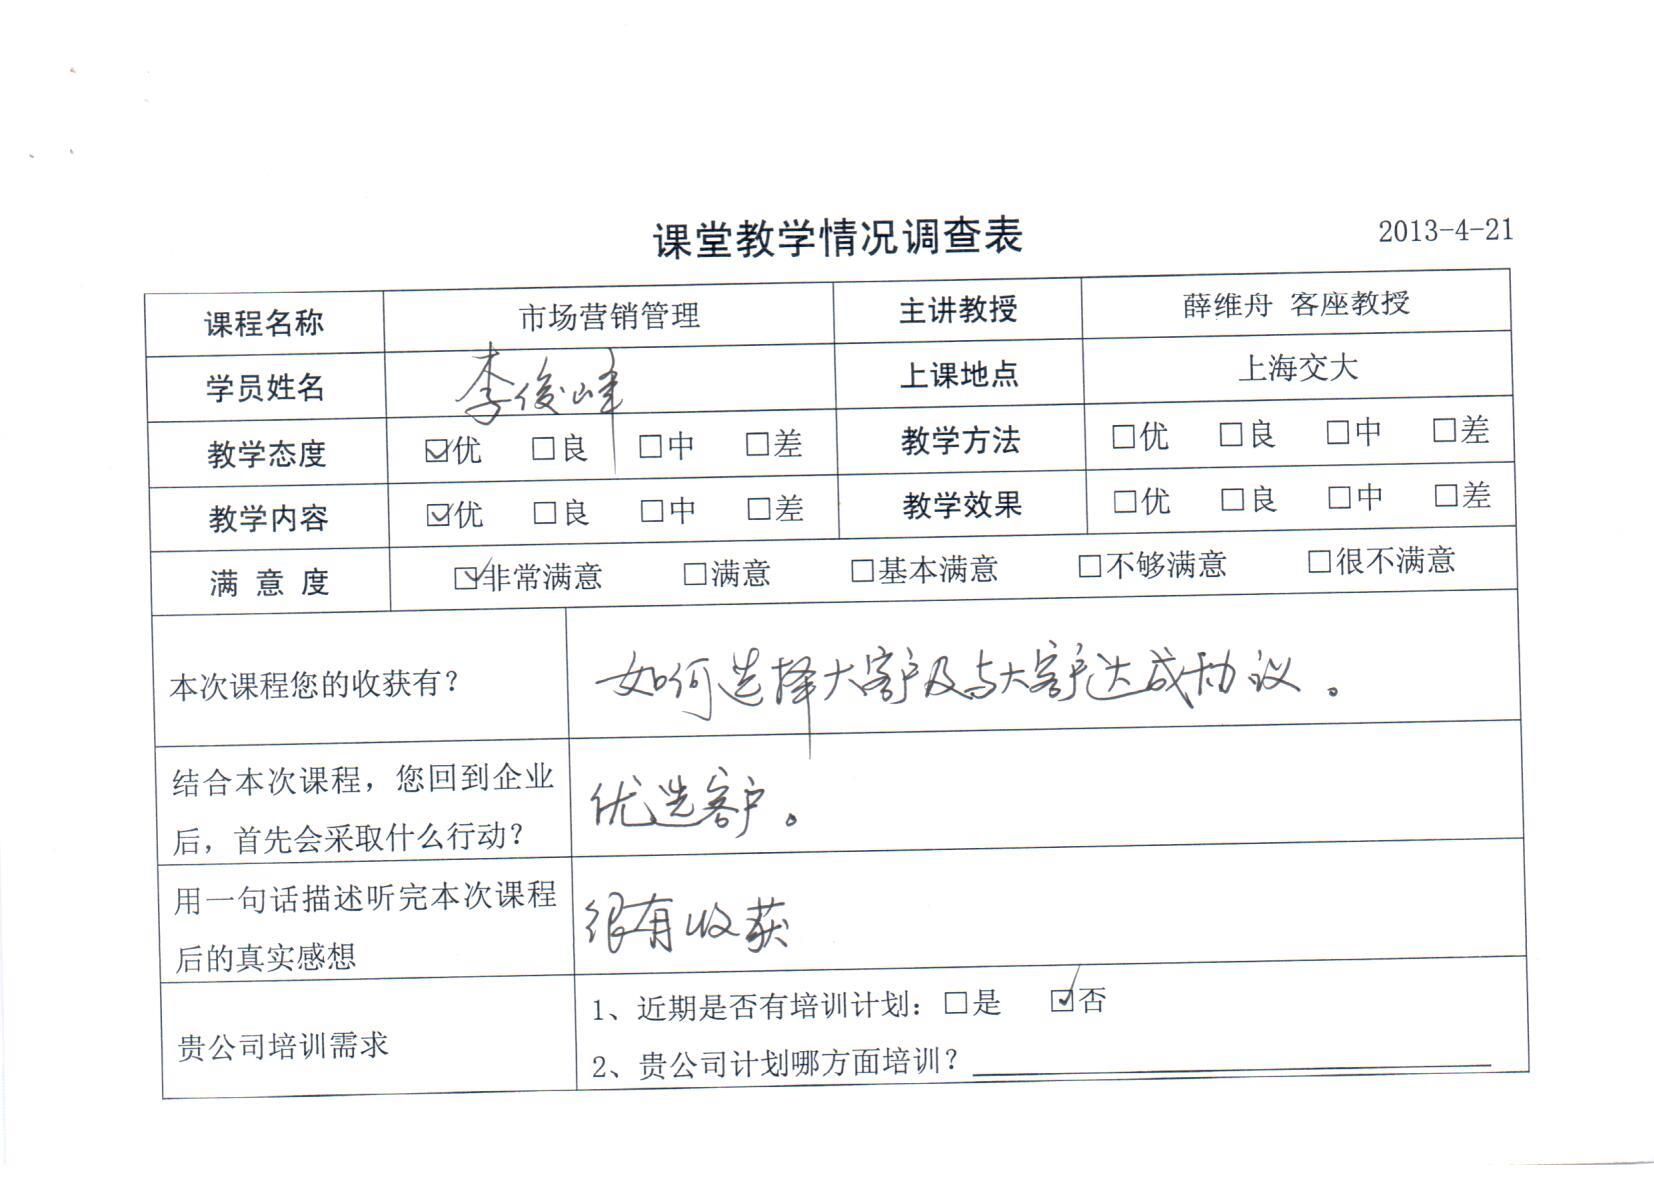 课堂教学情况调查表 2013-4-21
课程名称 市场营销管理 主讲教授 薛维舟 客座教授
学员姓名 李俊峰 上课地点 上海交大
教学态度 ☑优 □良 □中 □差 教学方法 □优 □良 □中 □差
教学内容 ☑优 □良 □中 □差 教学效果 □优 □良 □中 □差
满 意 度 ☑非常满意 □满意 □基本满意 □不够满意 □很不满意
本次课程您的收获有？ 如何选择大客户及与大客户达成协议。
结合本次课程，您回到企业
后，首先会采取什么行动？ 优选客户。
用一句话描述听完本次课程
后的真实感想 很有收获
贵公司培训需求
1、近期是否有培训计划：□是 ☑否
2、贵公司计划哪方面培训？